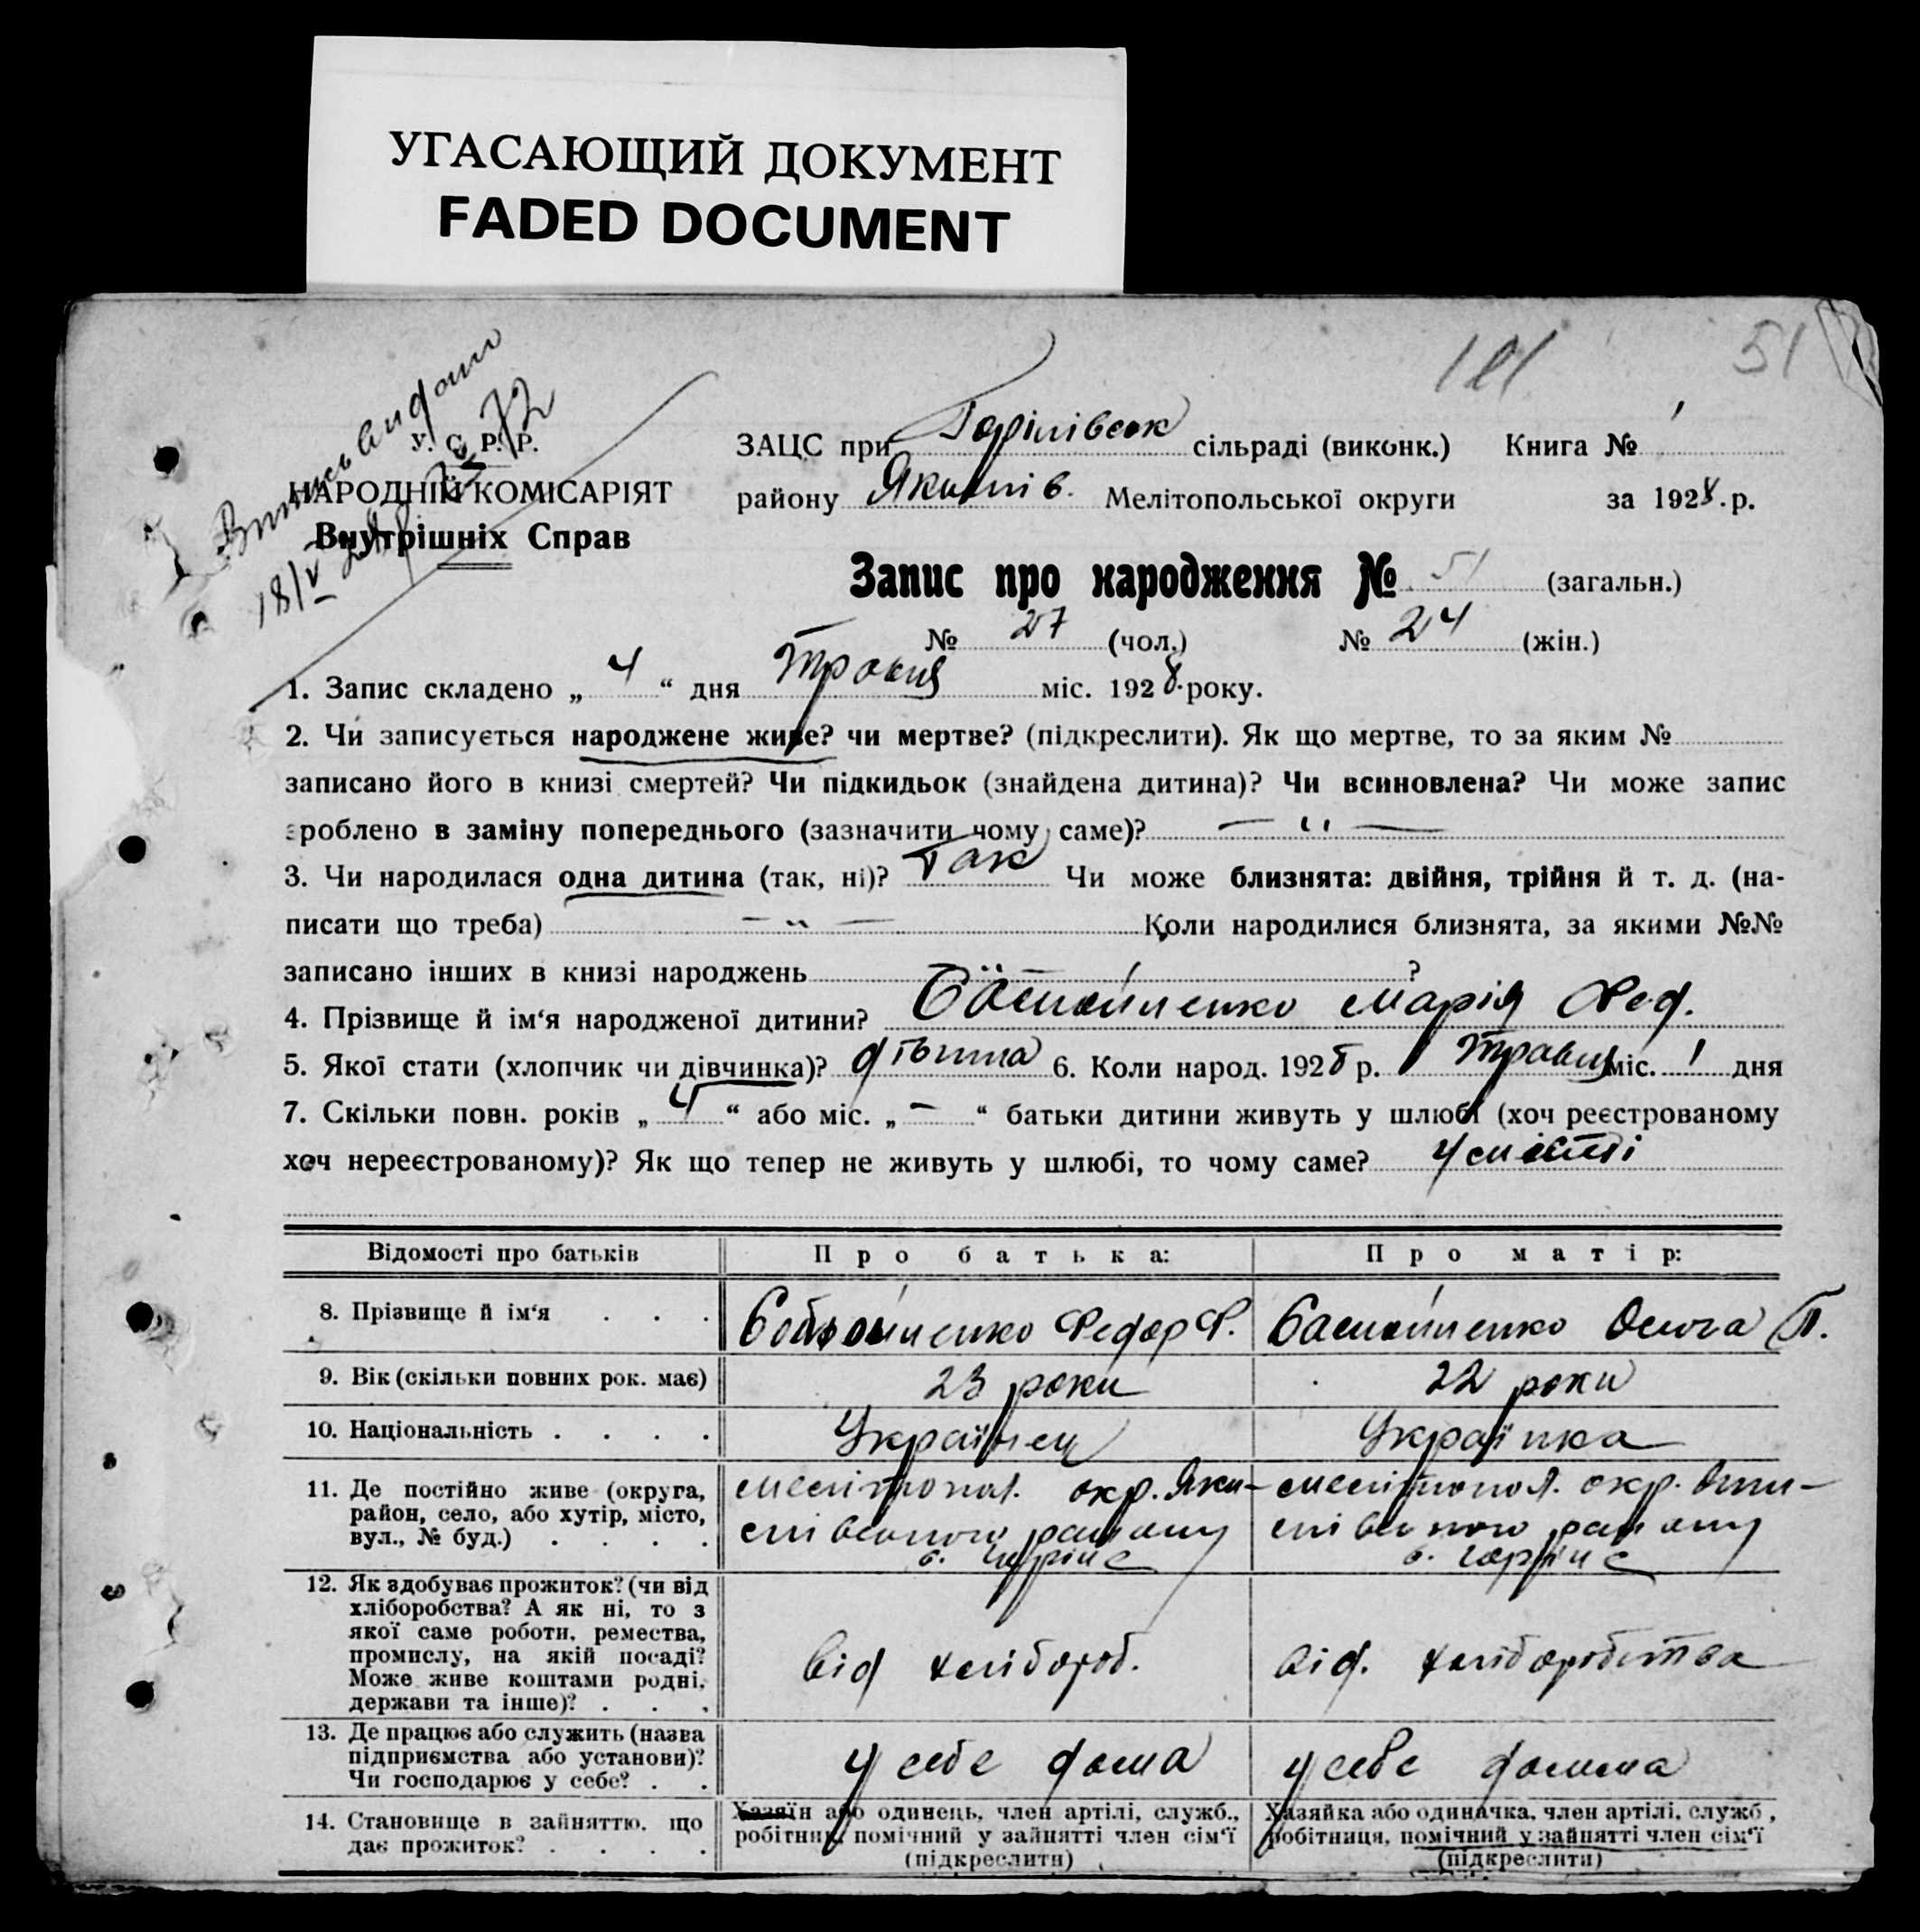 УГАСАЮЩИЙ ДОКУМЕНТ
FADED DOCUMENT
181
51
Випись видано
У. С. Р. Р.
НАРОДНІЙ КОМІСАРІЯТ
Внутрішніх Справ
18/V 28 р. № 72
ЗАЦС при сільраді (виконк.) Книга № 1
району Якимів. Мелітопольської округи за 1928.р.
Запис про народження № 51 (загальн.)
№ 27 (чол.) № 24 (жін.)
1. Запис складено „ 4 “ дня Травня міс. 1928.року.
2. Чи записується народжене живе? чи мертве? (підкреслити). Як що мертве, то за яким №
записано його в книзі смертей? Чи підкидьок (знайдена дитина)? Чи всиновлена? Чи може запис
зроблено в заміну попереднього (зазначити чому саме)? — „ —
3. Чи народилася одна дитина (так, ні)? Так Чи може близнята: двійня, трійня й т. д. (на-
писати що треба) — „ — Коли народилися близнята, за якими №№
записано інших в книзі народжень ?
4. Прізвище й ім‘я народженої дитини? Марія Фед.
5. Якої стати (хлопчик чи дівчинка)? 6. Коли народ. 1928 р. Травня міс. 1 дня
7. Скільки повн. років „ 4 “ або міс. „ — “ батьки дитини живуть у шлюбі (хоч реєстрованому
хоч нереєстрованому)? Як що тепер не живуть у шлюбі, то чому саме?
Відомості про батьків Про батька: Про матір:
8. Прізвище й ім‘я . . . Федор Ф. Ольга П.
9. Вік (скільки повних рок. має) 23 роки 22 роки
10. Національність . . . . Українец Українка
11. Де постійно живе (округа,
район, село, або хутір, місто,
вул., № буд.) . . . .
Мелітопол. окр. Яки-
мівського району
с. Горіне
Мелітопол. окр. Яки-
мівського району
с. Горіне
12. Як здобуває прожиток? (чи від
хліборобства? А як ні, то з
якої саме роботи, ремества,
промислу, на якій посаді?
Може живе коштами родні,
держави та інше)? . . .
від хлібороб.
від. хліборобства
13. Де працює або служить (назва
підприємства або установи)?
Чи господарює у себе? . .
у себе дома
у себе дома
14. Становище в зайняттю, що
дає прожиток? . . . .
Хазяїн або одинець, член артілі, служб.,
робітник, помічний у зайнятті член сім‘ї
(підкреслити)
Хазяйка або одиначка, член артілі, служб ,
робітниця, помічний у зайнятті член сім‘ї
(підкреслити)